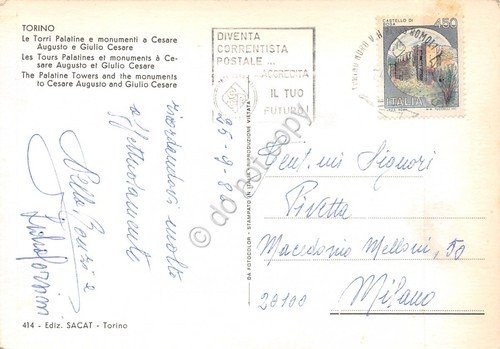 TORINO
Le Torri Palatine e monumenti a Cesare
Augusto e Giulio Cesare
Les Tours Palatines et monuments à Cé-
sare Augusto et Giulio Cesare
The Palatine Towers and the monuments
to Cesare Augusto and Giulio Cesare
DIVENTA
CORRENTISTA
POSTALE...
ACCREDITA
IL TUO
FUTURO!
CASTELLO DI
450
ITALIA
25-9-8
ricordandovi molto
affettuosamente
Nella
do not copy
DA FOTOCOLOR - STAMPATO IN ITALIA RIPRODUZIONE VIETATA
Gent.mi Signori
Pivetta
Macedonio Melloni, 50
20100
Milano
414 - Ediz. SACAT - Torino